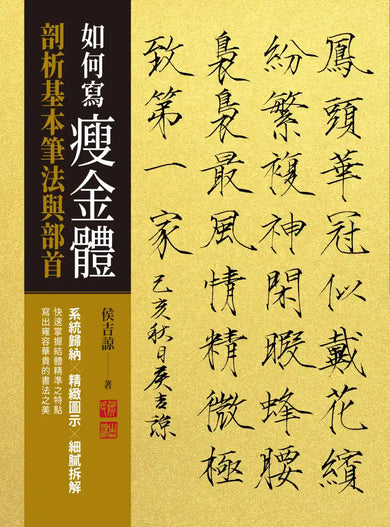 如何寫
瘦金體
剖析基本筆法與部首
侯吉諒──著
系統歸納×精緻圖示×細膩拆解
快速掌握結體精準之特點
寫出雍容華貴的書法之美
鳳頭華冠似戴花繽
紛繁複神閑暇蜂腰
裊裊最風情精微極
致第一家
己亥秋日侯吉諒